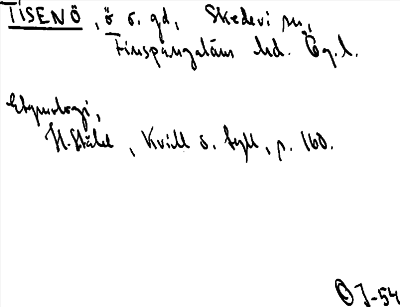 TISENÖ, ö o. gd, Skedevi sn,
Finspångaläns hd. Ög. l.
Etymologi,
H. Ståhl, Kvill o. tyll, p. 160.
OJ-54